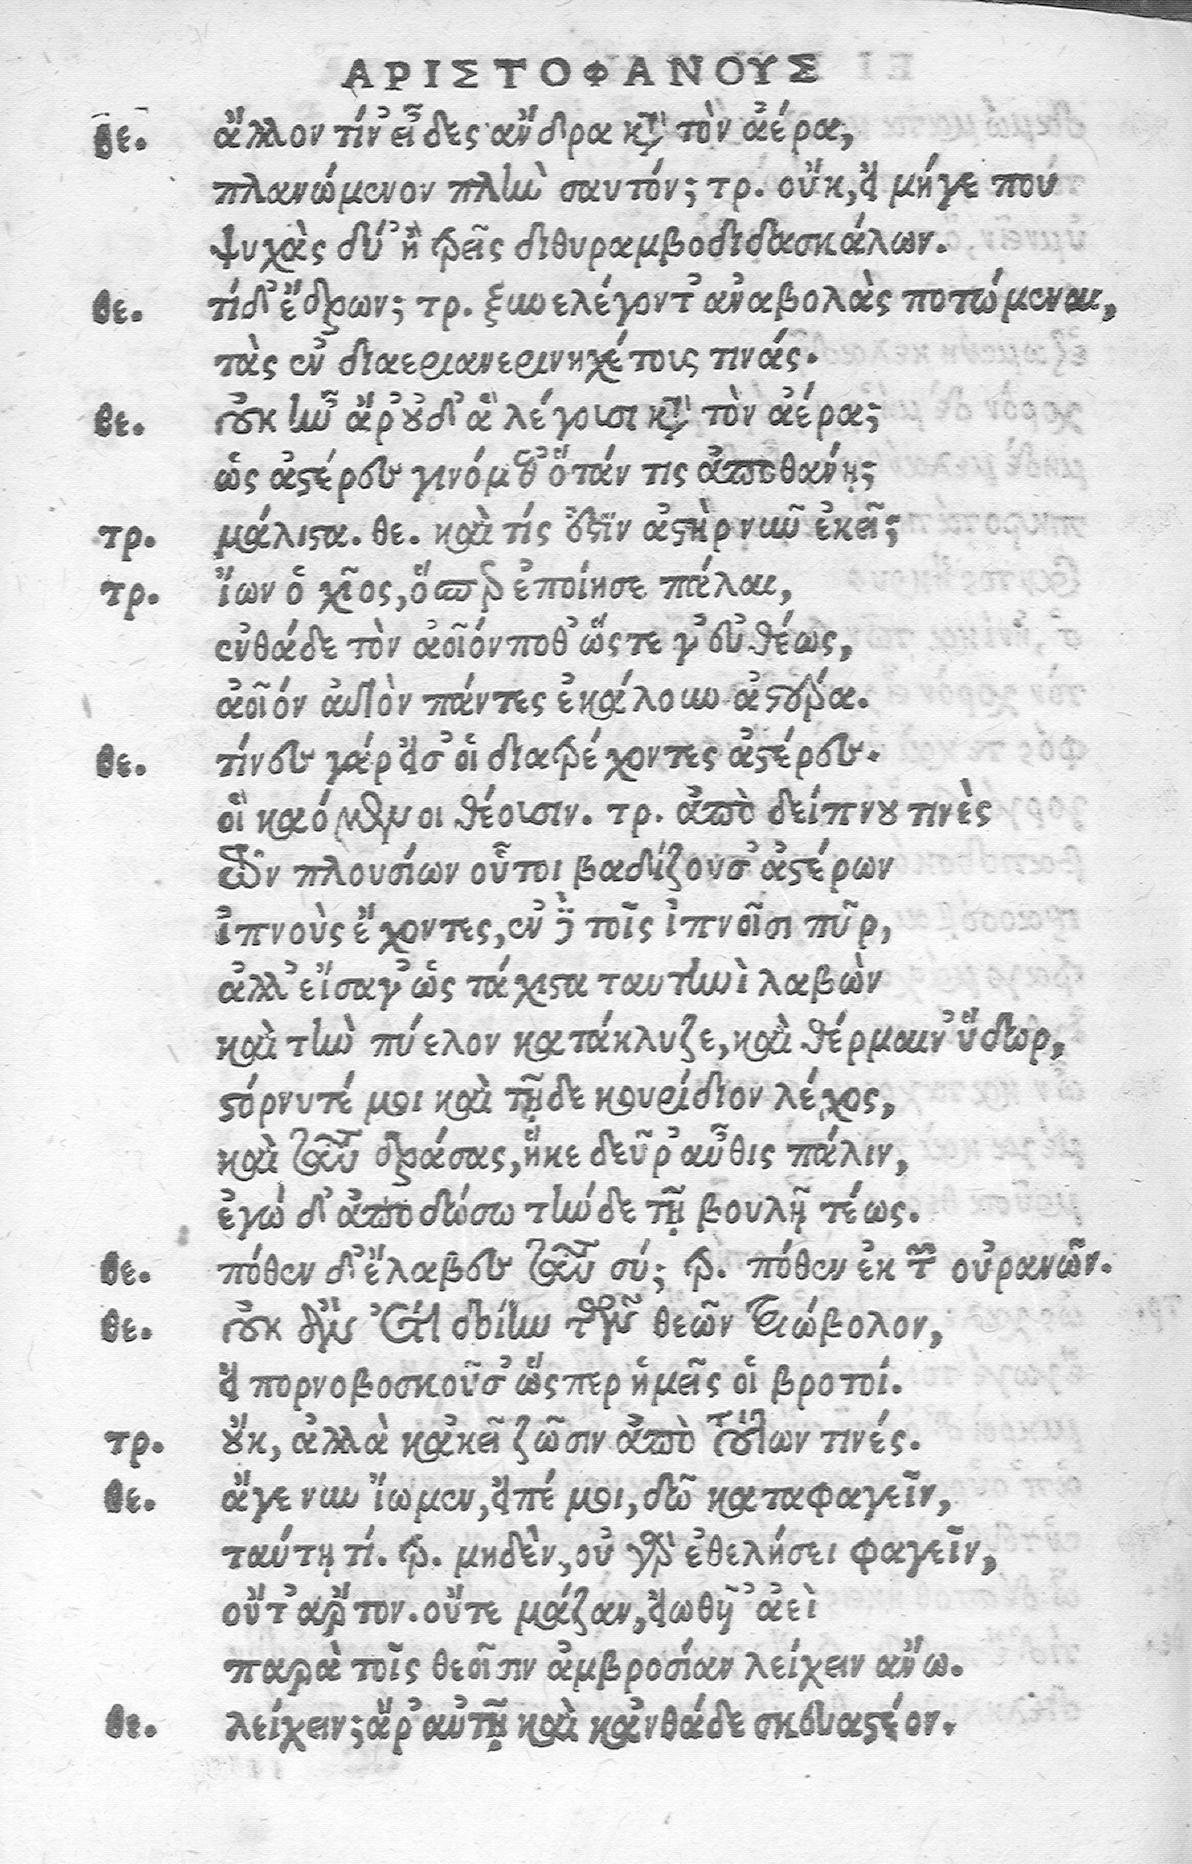 ΑΡΙΣΤΟΦΑΝΟΥΣ
θε. ἄλλον τίν' εἶδες ἄνδρα κτ' τὸν ἀέρα,
πλανώμενον πλὴν σαυτόν; τρ. οὔκ, εἰ μήγε που
ψυχὰς δύ' ἢ τρεῖς διθυραμβοδιδασκάλων.
θε. τίδ' ἔδρων; τρ. ξυνελέγοντ' ἀναβολὰς ποτώμεναι,
τὰς ἐν διαεριανερινηχέτοις τινάς.
θε. οὐκ ἦν ἄρ' οὐδ' ἃ λέγουσι κτ' τὸν ἀέρα;
ὡς ἀστέρες γινόμεθ' ὅτάν τις ἀποθανῃ;
τρ. μάλιστα. θε. καὶ τίς ἐστὶν ἀστὴρ νῦν ἐκεῖ;
τρ. ἴων ὁ χῖος, ὅσπερ ἐποίησε πάλαι,
ἐνθάδε τὸν ἀοῖόν ποθ' ὥστε γ' εὐθέως,
ἀοῖόν αὐτὸν πάντες ἐκάλουν ἀστέρα.
θε. τίνες γάρ εἰσ' οἱ διατρέχοντες ἀστέρες.
οἳ καόμενοι θέουσιν. τρ. ἀπὸ δείπνου τινὲς
τῶν πλουσίων οὗτοι βαδίζουσ' ἀστέρων
ἰπνοὺς ἔχοντες, ἐν δὲ τοῖς ἰπνοῖσι πῦρ,
ἀλλ' εἴσαγ' ὡς τάχιστα ταυτηνὶ λαβὼν
καὶ τὴν πύελον κατάκλυζε, καὶ θέρμαιν' ὕδωρ,
στόρνυτέ μοι καὶ τῇδε κουρίδιον λέχος,
καὶ ταῦτα δράσας, ἧκε δεῦρ' αὖθις πάλιν,
ἐγώ δ' ἀποδώσω τήνδε τῇ βουλῇ τέως.
θε. πόθεν δ' ἔλαβες ταῦτα σύ; τρ. πόθεν ἐκ τῶν οὐρανῶν.
θε. οὐκ ἂν ἔτι δοίην τῶν θεῶν τριώβολον,
εἰ πορνοβοσκοῦσ' ὥσπερ ἡμεῖς οἱ βροτοί.
τρ. οὔκ, ἀλλὰ κἀκεῖ ζῶσιν ἀπὸ τούτων τινές.
θε. ἄγε νυν ἴωμεν, εἰπέ μοι, δῶ καταφαγεῖν,
ταύτῃ τί. τρ. μηδὲν, οὐ γὰρ ἐθελήσει φαγεῖν,
οὔτ' ἄρτον. οὔτε μάζαν, εἰωθῦ' ἀεὶ
παρὰ τοῖς θεοῖσιν ἀμβροσίαν λείχειν ἄνω.
θε. λείχειν; ἄρ' αὐτῇ καὶ κἀνθάδε σκευαστέον.